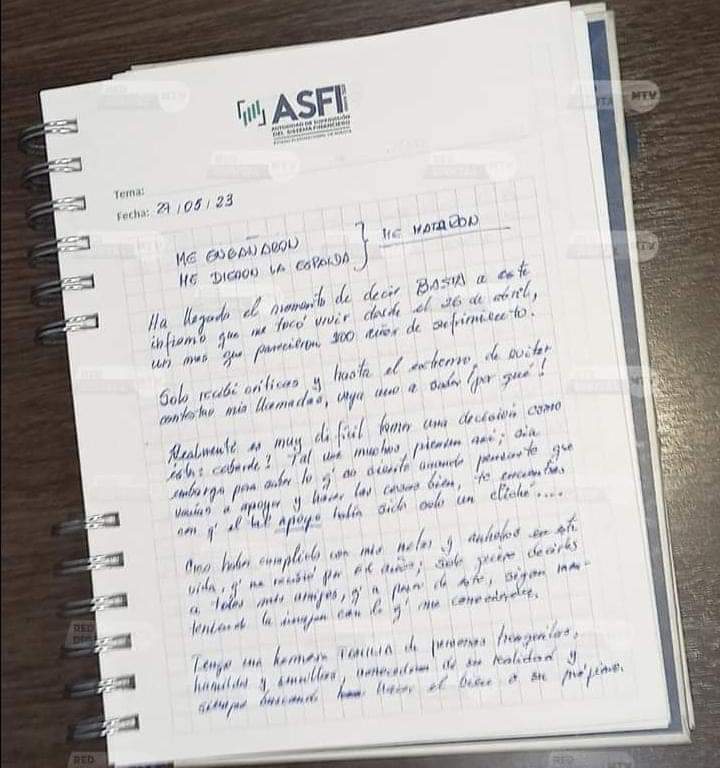 ASFI
AUTORIDAD DE SUPERVISIÓN
DEL SISTEMA FINANCIERO
Tema:
Fecha: 29/05/23
ME ENGAÑARON
ME DIERON LA ESPALDA } ME MATARON
Ha llegado el momento de decir BASTA a este
infierno que me tocó vivir desde el 26 de abril,
un mes que parecieron 100 años de sufrimiento.
Solo recibí críticas y hasta el extremo de evitar
contestar mis llamadas, vaya uno a saber ¡por qué!
Realmente es muy difícil tomar una decisión como
ésta: cobarde? Tal vez muchos piensan así; sin
embargo para saber lo q' se siente cuando pensaste que
vamos a apoyar y hacer las cosas bien, te encuentras
con q' el tal apoyo había sido solo un cliché....
Creo haber cumplido con mis metas y anhelos en esta
vida, q' me recibió por años; solo quiero decirles
a todos mis amigos, q' a pesar de esto, sigan man-
teniendo la imagen con la q' me conocieron.
Tengo una hermosa FAMILIA de personas tranquilas,
humildes y sencillas, conocedoras de su realidad y
siempre buscando hacer el bien a su prójimo.
RED
MTV